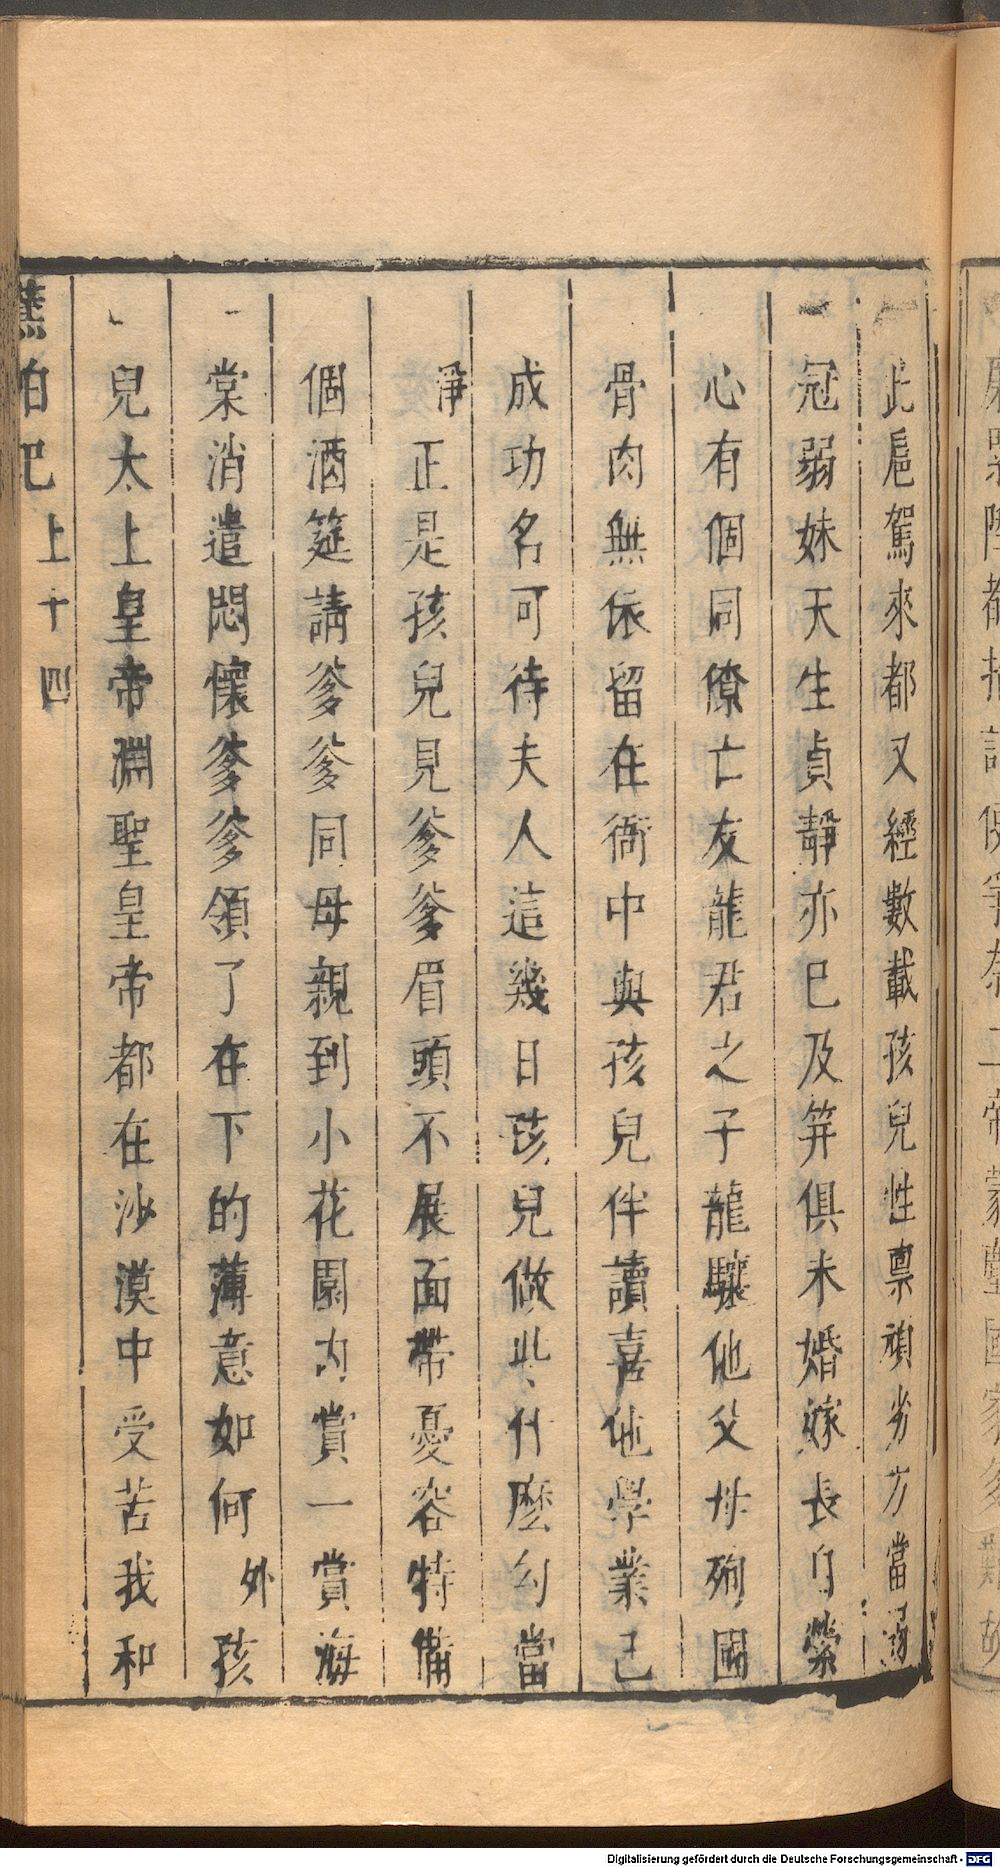 此扈駕來都又經數載孩兒性禀頑劣方當溺
冠弱妹天生貞靜亦已及笄俱未婚嫁長自縈
心有個同僚亡友龍君之子龍驤他父母殉國
骨肉無依留在衙中與孩兒伴讀喜他學業已
成功名可待夫人這幾日孩兒做些什麼勾當
淨正是孩兒見爹爹眉頭不展面帶憂容特備
個酒筵請爹爹同母親到小花園内賞一賞海
棠消遣悶懷爹爹領了在下的薄意如何外孩
兒太上皇帝淵聖皇帝都在沙漠中受苦我和
蕉帕記上十四
Digitalisierung gefördert durch die Deutsche Forschungsgemeinschaft - DFG